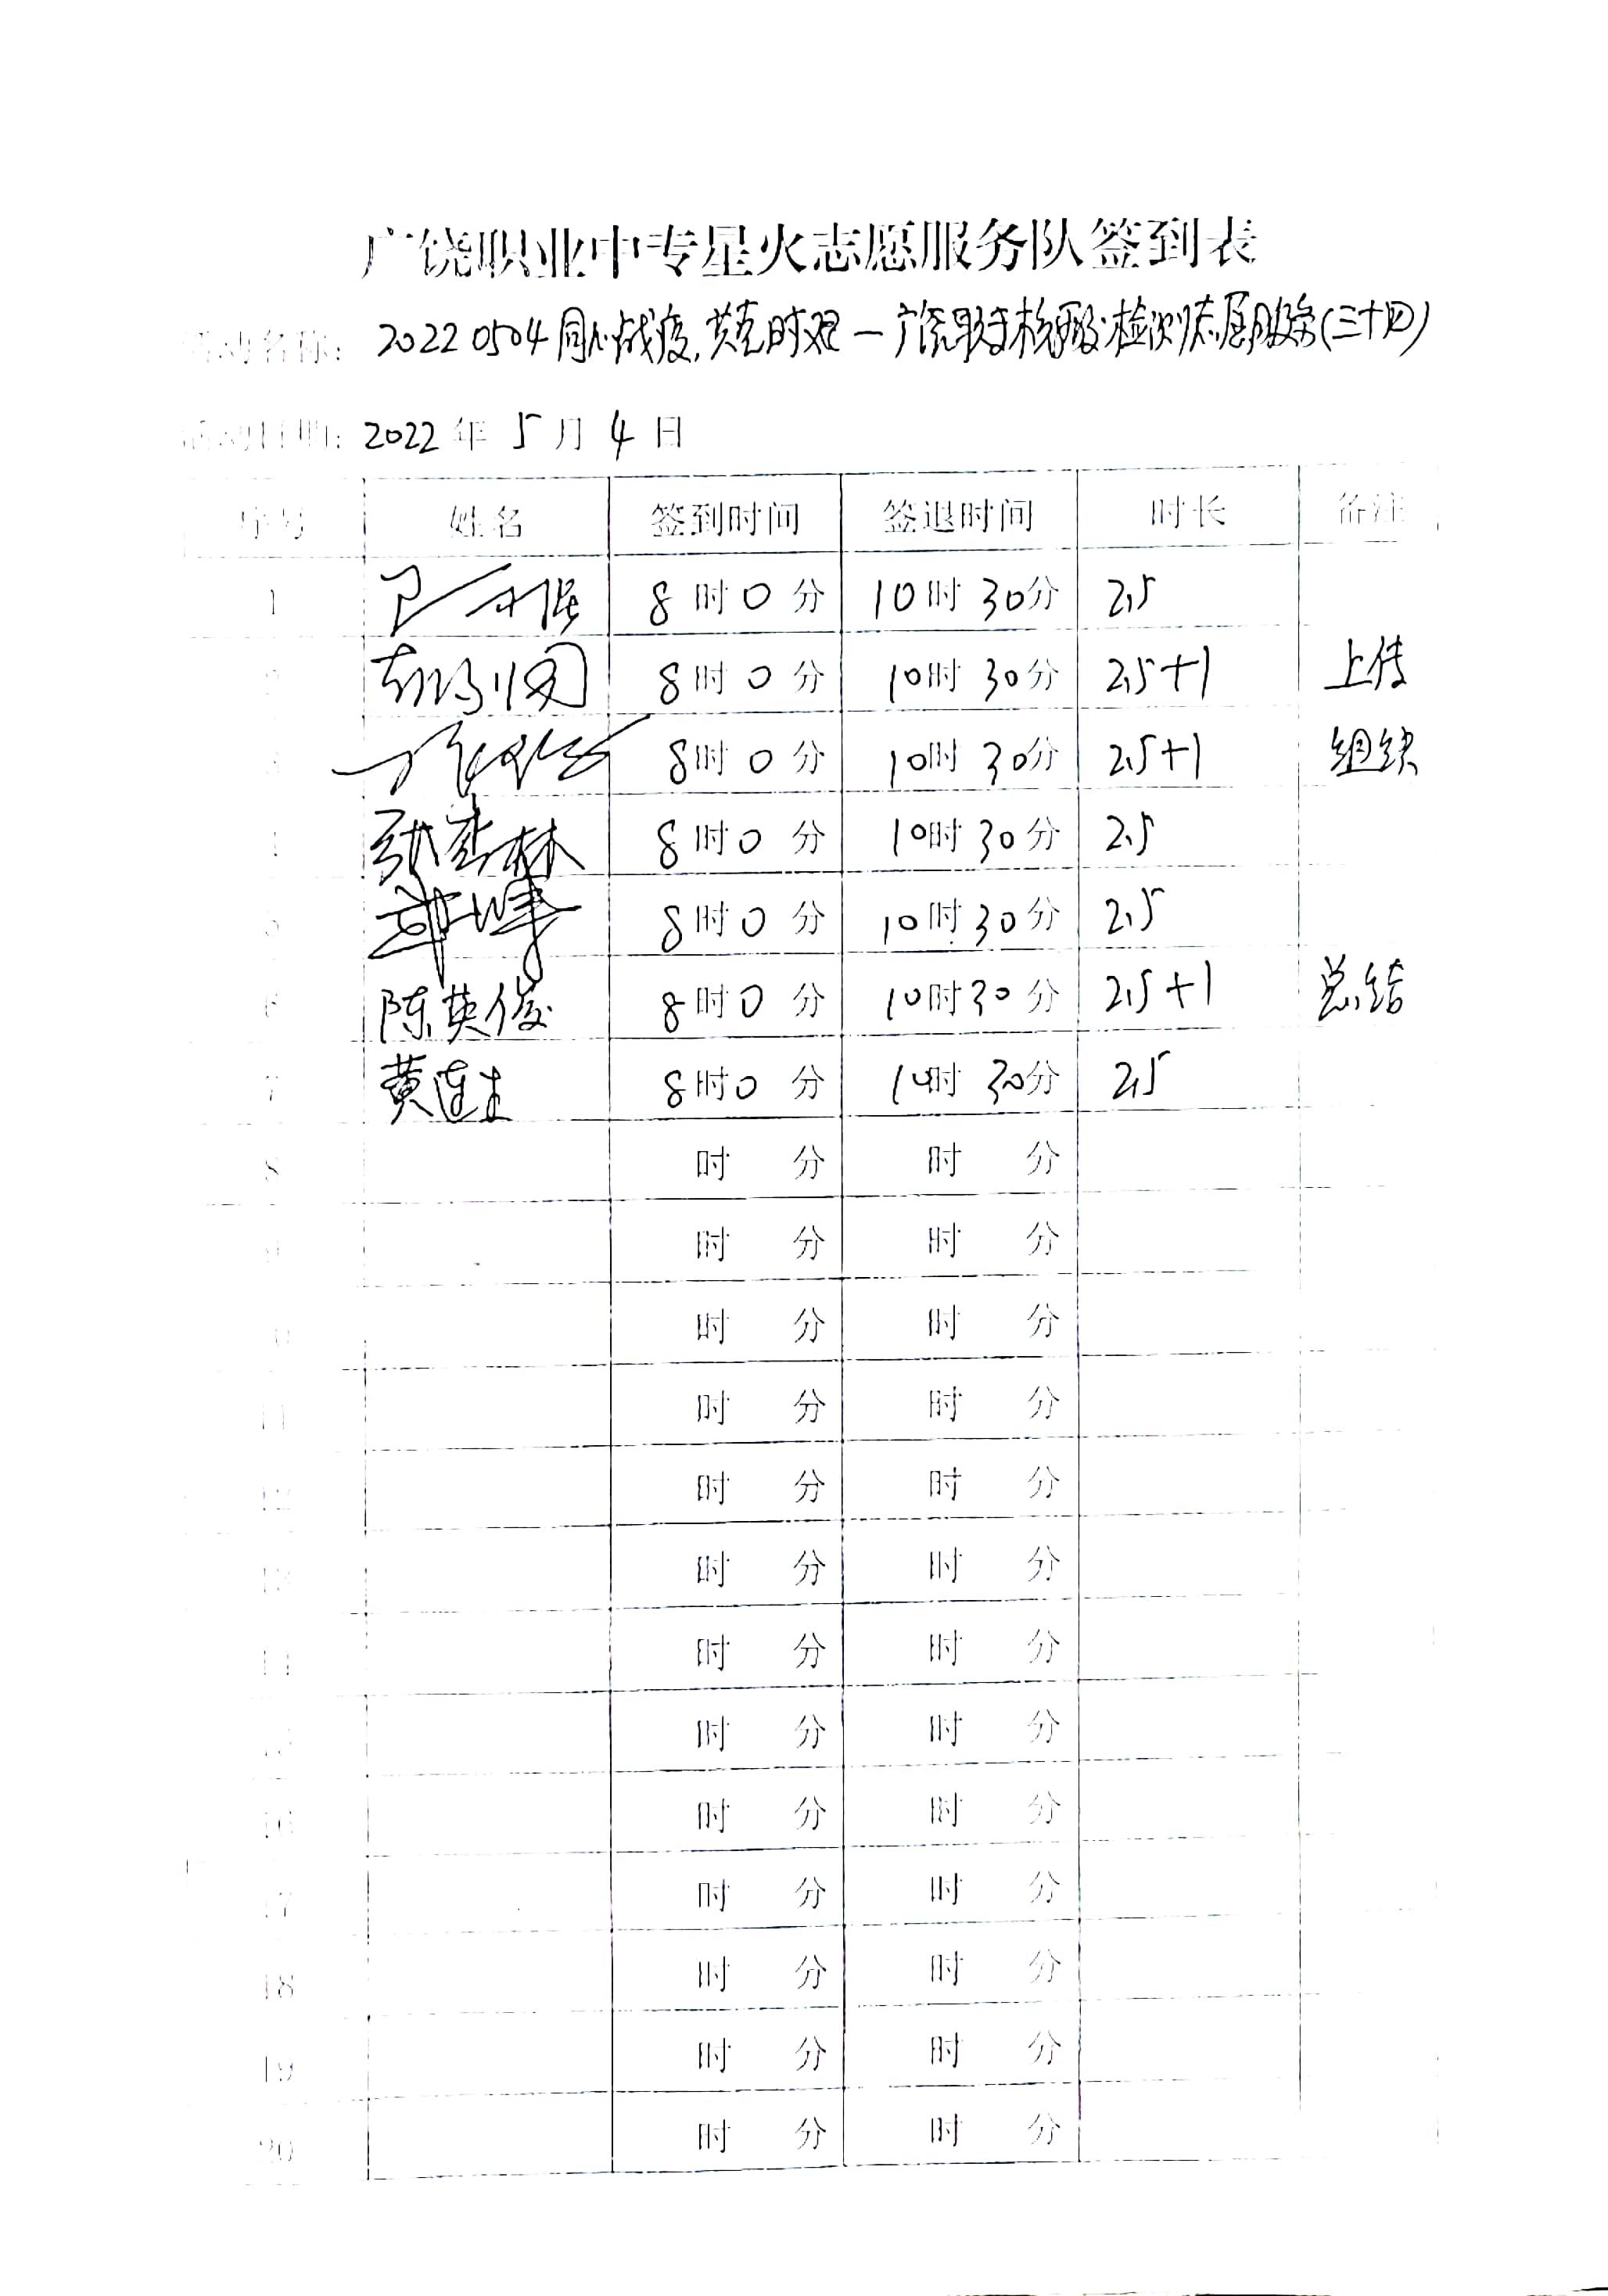 广饶职业中专星火志愿服务队签到表
活动名称: 20220504同心战疫,共克时艰—广饶职专核酸检测志愿服务(三十四)
活动日期: 2022 年 5 月 4 日
序号 姓名 签到时间 签退时间 时长 备注
1 8时0分 10时30分 2.5
2 8时0分 10时30分 2.5+1 上传
3 8时0分 10时30分 2.5+1 组织
4 张杰林 8时0分 10时30分 2.5
5 8时0分 10时30分 2.5
6 陈英俊 8时0分 10时30分 2.5+1 总结
7 黄连 8时0分 10时30分 2.5
8 时 分 时 分
9 时 分 时 分
10 时 分 时 分
11 时 分 时 分
12 时 分 时 分
13 时 分 时 分
14 时 分 时 分
15 时 分 时 分
16 时 分 时 分
17 时 分 时 分
18 时 分 时 分
19 时 分 时 分
20 时 分 时 分